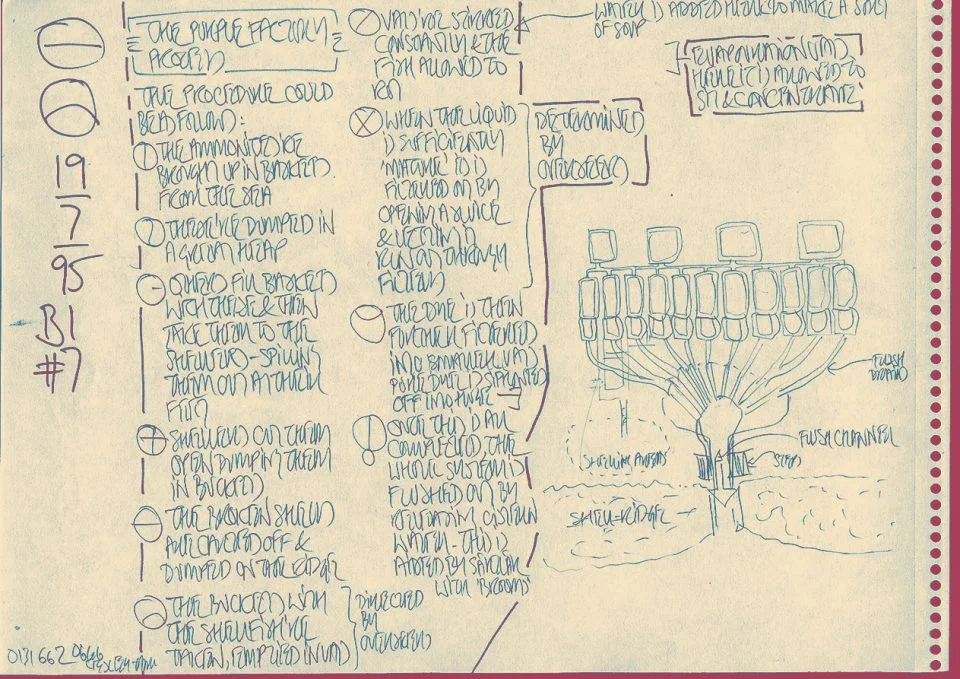 19
7
95
B1
#7
THE PURPLE FACTORY
PROCESS
THE PROCEDURE COULD
BE AS FOLLOWS:
THE AMMONITES ARE
BROUGHT UP IN BASKETS
FROM THE SEA
THESE ARE DUMPED IN
A GREAT HEAP
OTHERS FILL BASKETS
WITH THESE & THEN
TAKE THEM TO THE
SHELLERS - SPILLING
THEM OUT AT THEIR
FEET
SHELLERS CUT THEM
OPEN DUMPING THEM
IN BUCKETS
THE BROKEN SHELLS
ARE CARTED OFF &
DUMPED ON THE RIDGE
THE BUCKETS WITH
THE SHELLFISH ARE
TAKEN, EMPTIED IN VATS
DIRECTED
BY
OVERSEERS
0131 662
VATS ARE STIRRED
CONSTANTLY & THE
FISH ALLOWED TO
ROT
WATER IS ADDED HERE TO MAKE A SORT
OF SOUP
WHEN THE LIQUID
IS SUFFICIENTLY
'MATURE' IT IS
FILTERED OFF BY
OPENING A SLUICE
& LETTING IT
RUN OFF THROUGH
FILTERS
DETERMINED
BY
OVERSEERS
THE DYE IS THEN
FURTHER FILTERED
INTO SMALLER VATS
PURE DYE IS SIPHONED
OFF INTO THESE
ONCE THIS IS ALL
COMPLETED, THE
WHOLE SYSTEM IS
FLUSHED OUT BY
RELEASING CISTERN
WATER - THIS IS
AIDED BY SLAVES
WITH 'BROOMS'
EVAPORATION VATS
HERE IT IS ALLOWED TO
SIT & CONCENTRATE
FLUSH
DRAINS
FLUSH CHANNEL
STEPS
SHELLING AREAS
SHELL-RIDGE